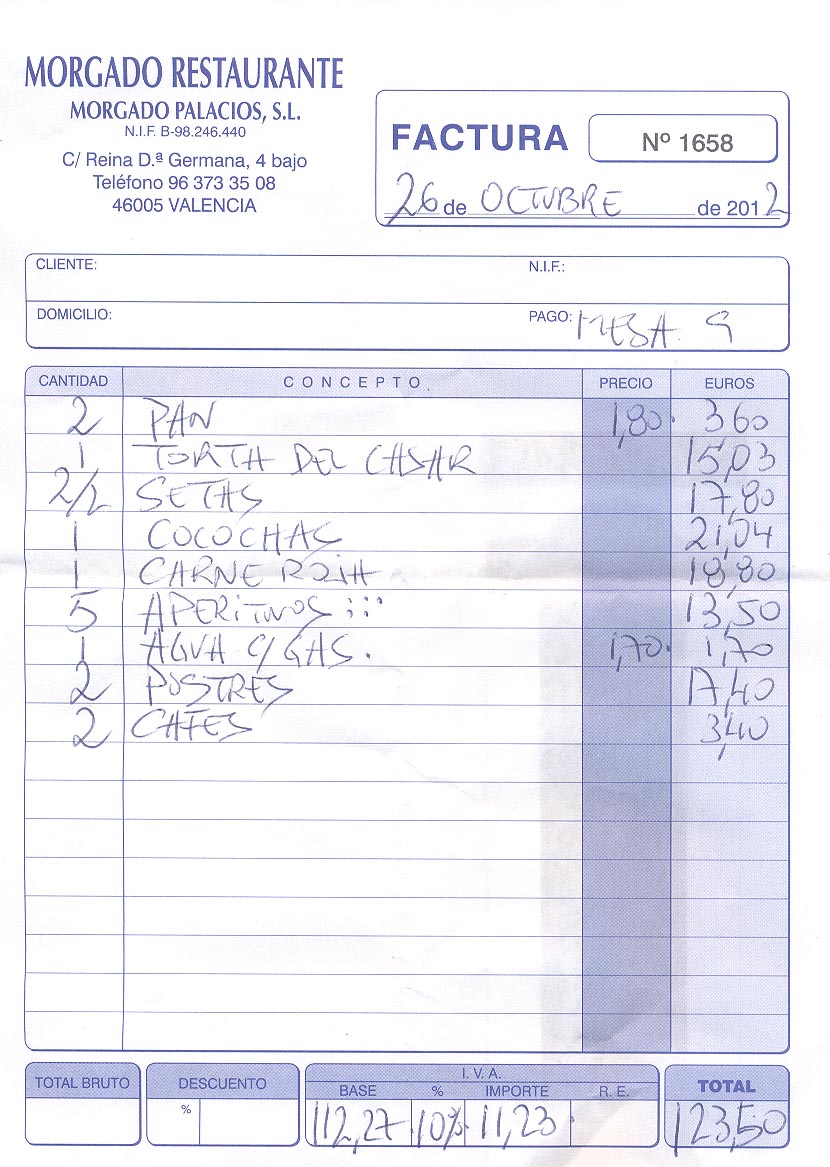 MORGADO RESTAURANTE
MORGADO PALACIOS, S.L.
N.I.F. B-98.246.440
C/ Reina D.ª Germana, 4 bajo
Teléfono 96 373 35 08
46005 VALENCIA
FACTURA Nº 1658
26 de OCTUBRE de 2012
CLIENTE: N.I.F.:
DOMICILIO: PAGO: MESA 9
CANTIDAD CONCEPTO PRECIO EUROS
2 PAN 1,80 3,60
1 TORTA DEL CASAR 15,03
2/2 SETAS 17,80
1 COCOCHAS 21,04
1 CARNE ROJA 18,80
5 APERITIVOS 13,50
1 AGUA C/ GAS. 1,70 1,70
2 POSTRES 17,40
2 CAFES 3,40
TOTAL BRUTO DESCUENTO I.V.A. TOTAL
% BASE % IMPORTE R.E.
112,27 10% 11,23 123,50